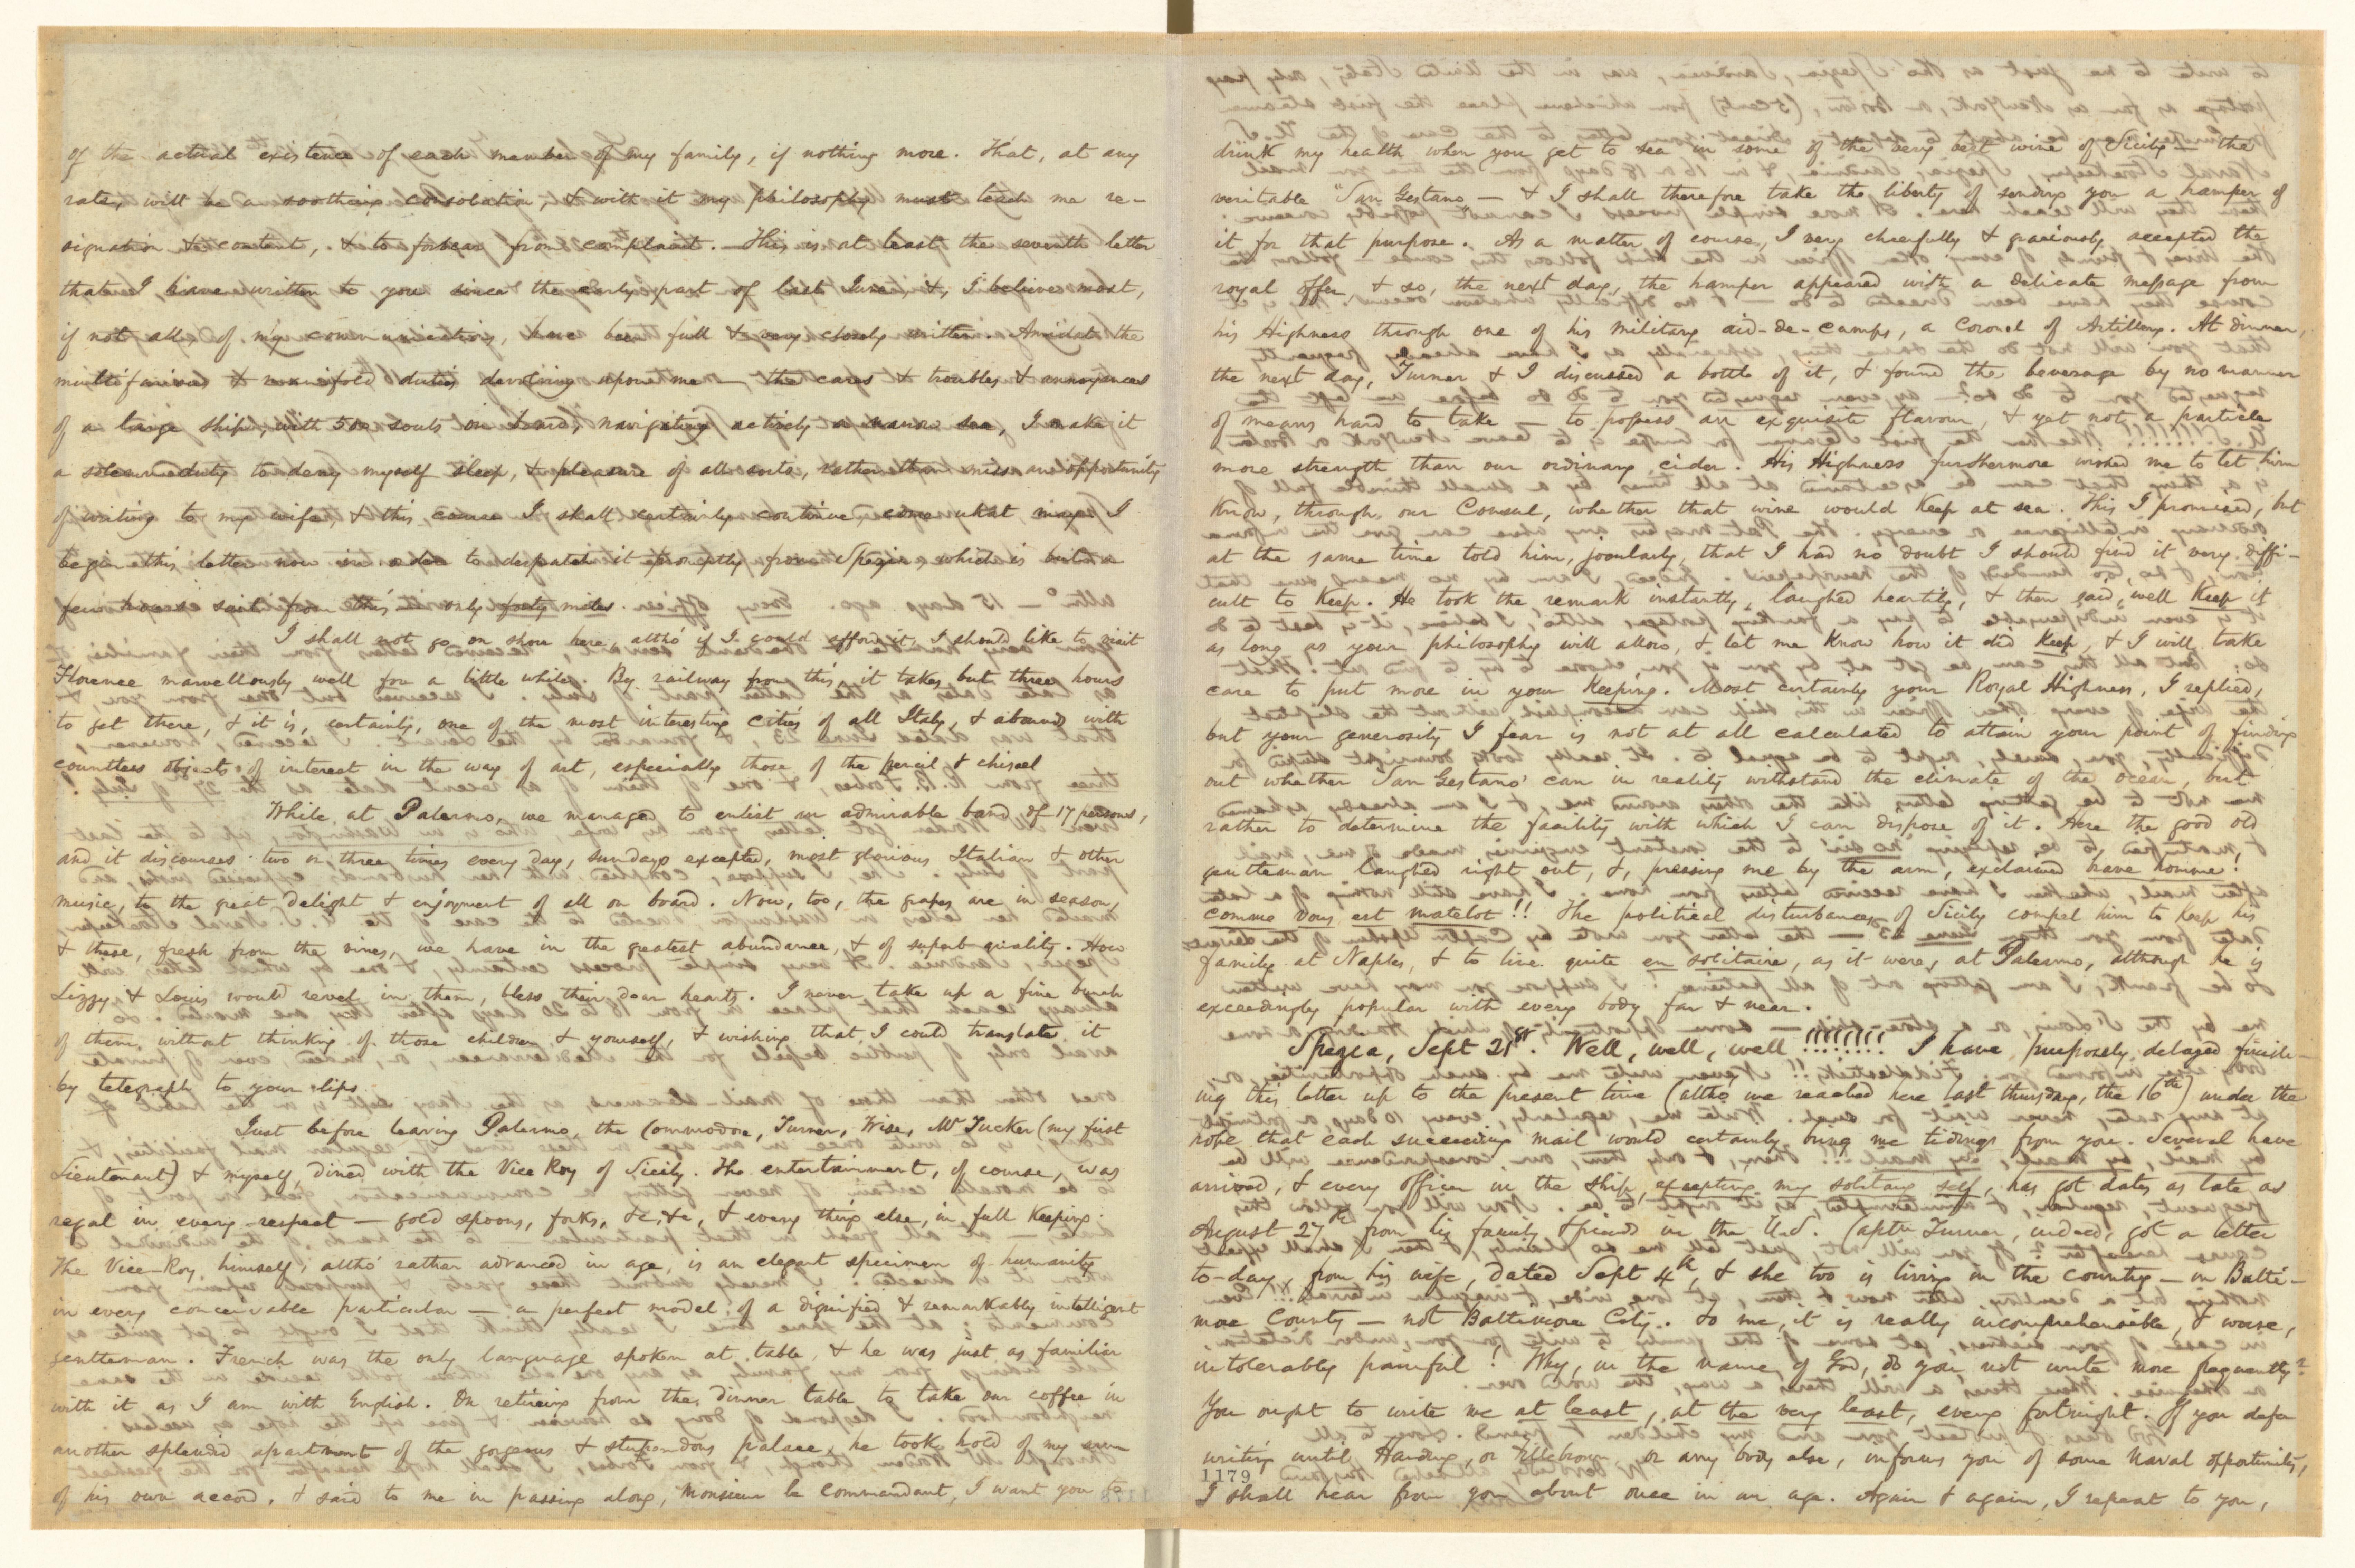 of the actual existence of each member of my family, if nothing more. That, at any
rate, will be a soothing consolation, & with it my philosophy must teach me re-
signation & content, & to forbear from complaint. This is at least the seventh letter
that I have written to you since the early part of last June, &, I believe most,
if not all of my communications, have been full & very closely written. Amidst the
multifarious & manifold duties devolving upon me — the cares & troubles & annoyances
of a large ship, with 500 souls on board, navigating actively a narrow sea, I make it
a solemn duty to deny myself sleep, & pleasure of all sorts, rather than miss an opportunity
of writing to my wife, & this course I shall certainly continue, come what may. I
begin this letter now in order to despatch it promptly from Spezia, which is but a
few hours sail from this — only forty miles.
I shall not go on shore here, altho' if I could afford it, I should like to visit
Florence marvellously well for a little while. By railway from this, it takes but three hours
to get there, & it is, certainly, one of the most interesting cities of all Italy, & abounds with
countless objects of interest in the way of art, especially those of the pencil & chisel
While at Palermo, we managed to enlist an admirable band of 17 persons,
and it discourses two or three times every day, sundays excepted, most glorious Italian & other
music, to the great delight & enjoyment of all on board. Now, too, the grapes are in season,
& these, fresh from the vines, we have in the greatest abundance, & of superb quality. How
Lizzy & Louis would revel in them, bless their dear hearts. I never take up a fine bunch
of them without thinking of those children & yourself, & wishing that I could translate it
by telegraph to your lips.
Just before leaving Palermo, the Commodore, Turner, Wise, Mr Tucker (my first
Lieutenant) & myself, dined with the Vice Roy of Sicily. The entertainment, of course, was
regal in every respect — gold spoons, forks, &c, &c, & every thing else, in full keeping.
The Vice-Roy himself, altho' rather advanced in age, is an elegant specimen of humanity
in every conceivable particular — a perfect model of a dignified & remarkably intelligent
gentleman. French was the only language spoken at table, & he was just as familiar
with it as I am with English. On retiring from the dinner table to take our coffee in
another splendid apartment of the gorgeous & stupendous palace, he took hold of my arm
of his own accord, & said to me in passing along, Monsieur le Commandant, I want you to
drink my health when you get to sea in some of the very best wine of Sicily — the
veritable "San Gestano — & I shall therefore take the liberty of sending you a hamper of
it for that purpose. As a matter of course, I very cheerfully & graciously accepted the
royal offer, & so, the next day, the hamper appeared with a delicate message from
his Highness through one of his military aid-de-camps, a Coronel of Artillery. At dinner,
the next day, Turner & I discussed a bottle of it, & found the beverage by no manner
of means hard to take — to possess an exquisite flavour, & yet not a particle
more strength than our ordinary cider. His Highness furthermore wished me to let him
know, through our Consul, whether that wine would keep at sea. This I promised, but
at the same time told him, jocularly, that I had no doubt I should find it very diffi-
cult to keep. He took the remark instantly, laughed heartily, & then said, well keep it
as long as your philosophy will allow, & let me know how it did keep, & I will take
care to put more in your keeping. Most certainly your Royal Highness, I replied,
but your generosity I fear is not at all calculated to attain your point of finding
out whether 'San Gestano' can in reality withstand the climate of the ocean, but
rather to determine the facility with which I can dispose of it. Here the good old
gentleman laughed right out, &, pressing me by the arm, exclaimed have homme!
comme vous est matelot!! The political disturbances of Sicily compel him to keep his
family at Naples, & to live quite en solitaire, as it were, at Palermo, although he is
exceedingly popular with every body far & near.
Spezia, Sept 21st. Well, well, well!!!!!!!! I have purposely delayed finish-
ing this letter up to the present time (altho we reached here last thursday, the 16th) under the
hope that each succeeding mail would certainly bring me tidings from you. Several have
arrived, & every officer in the ship, excepting my solitary self, has got dates as late as
August 27th from his family & friends in the U.S. Captn Turner, indeed, got a letter
to-day, from his wife, dated Sept 4th, & she too is living in the country — in Balti-
more County — not Baltimore City. To me, it is really incomprehensible, & worse,
intolerably painful! Why, in the name of God, do you not write more frequently?
You ought to write me at least, at the very least, every fortnight. If you defer
writing until Harding, or Fillebrown, or any body else, informs you of some naval opportunity,
1179
I shall hear from you about once in an age. Again & again, I repeat to you,